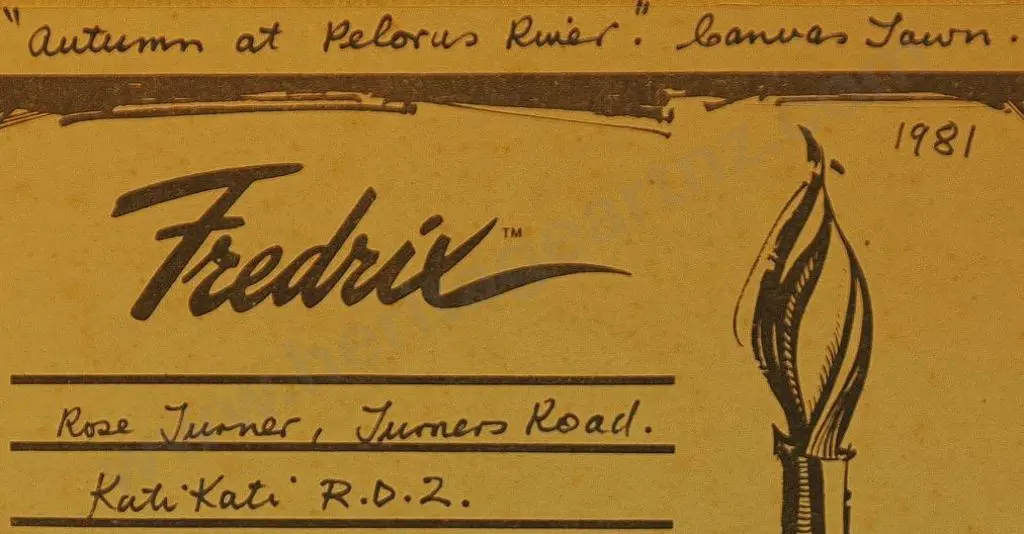 "Autumn at Pelorus River." Canvas Town.
1981
Fredrix™
Rose Turner, Turners Road.
Kati Kati R.D.2.